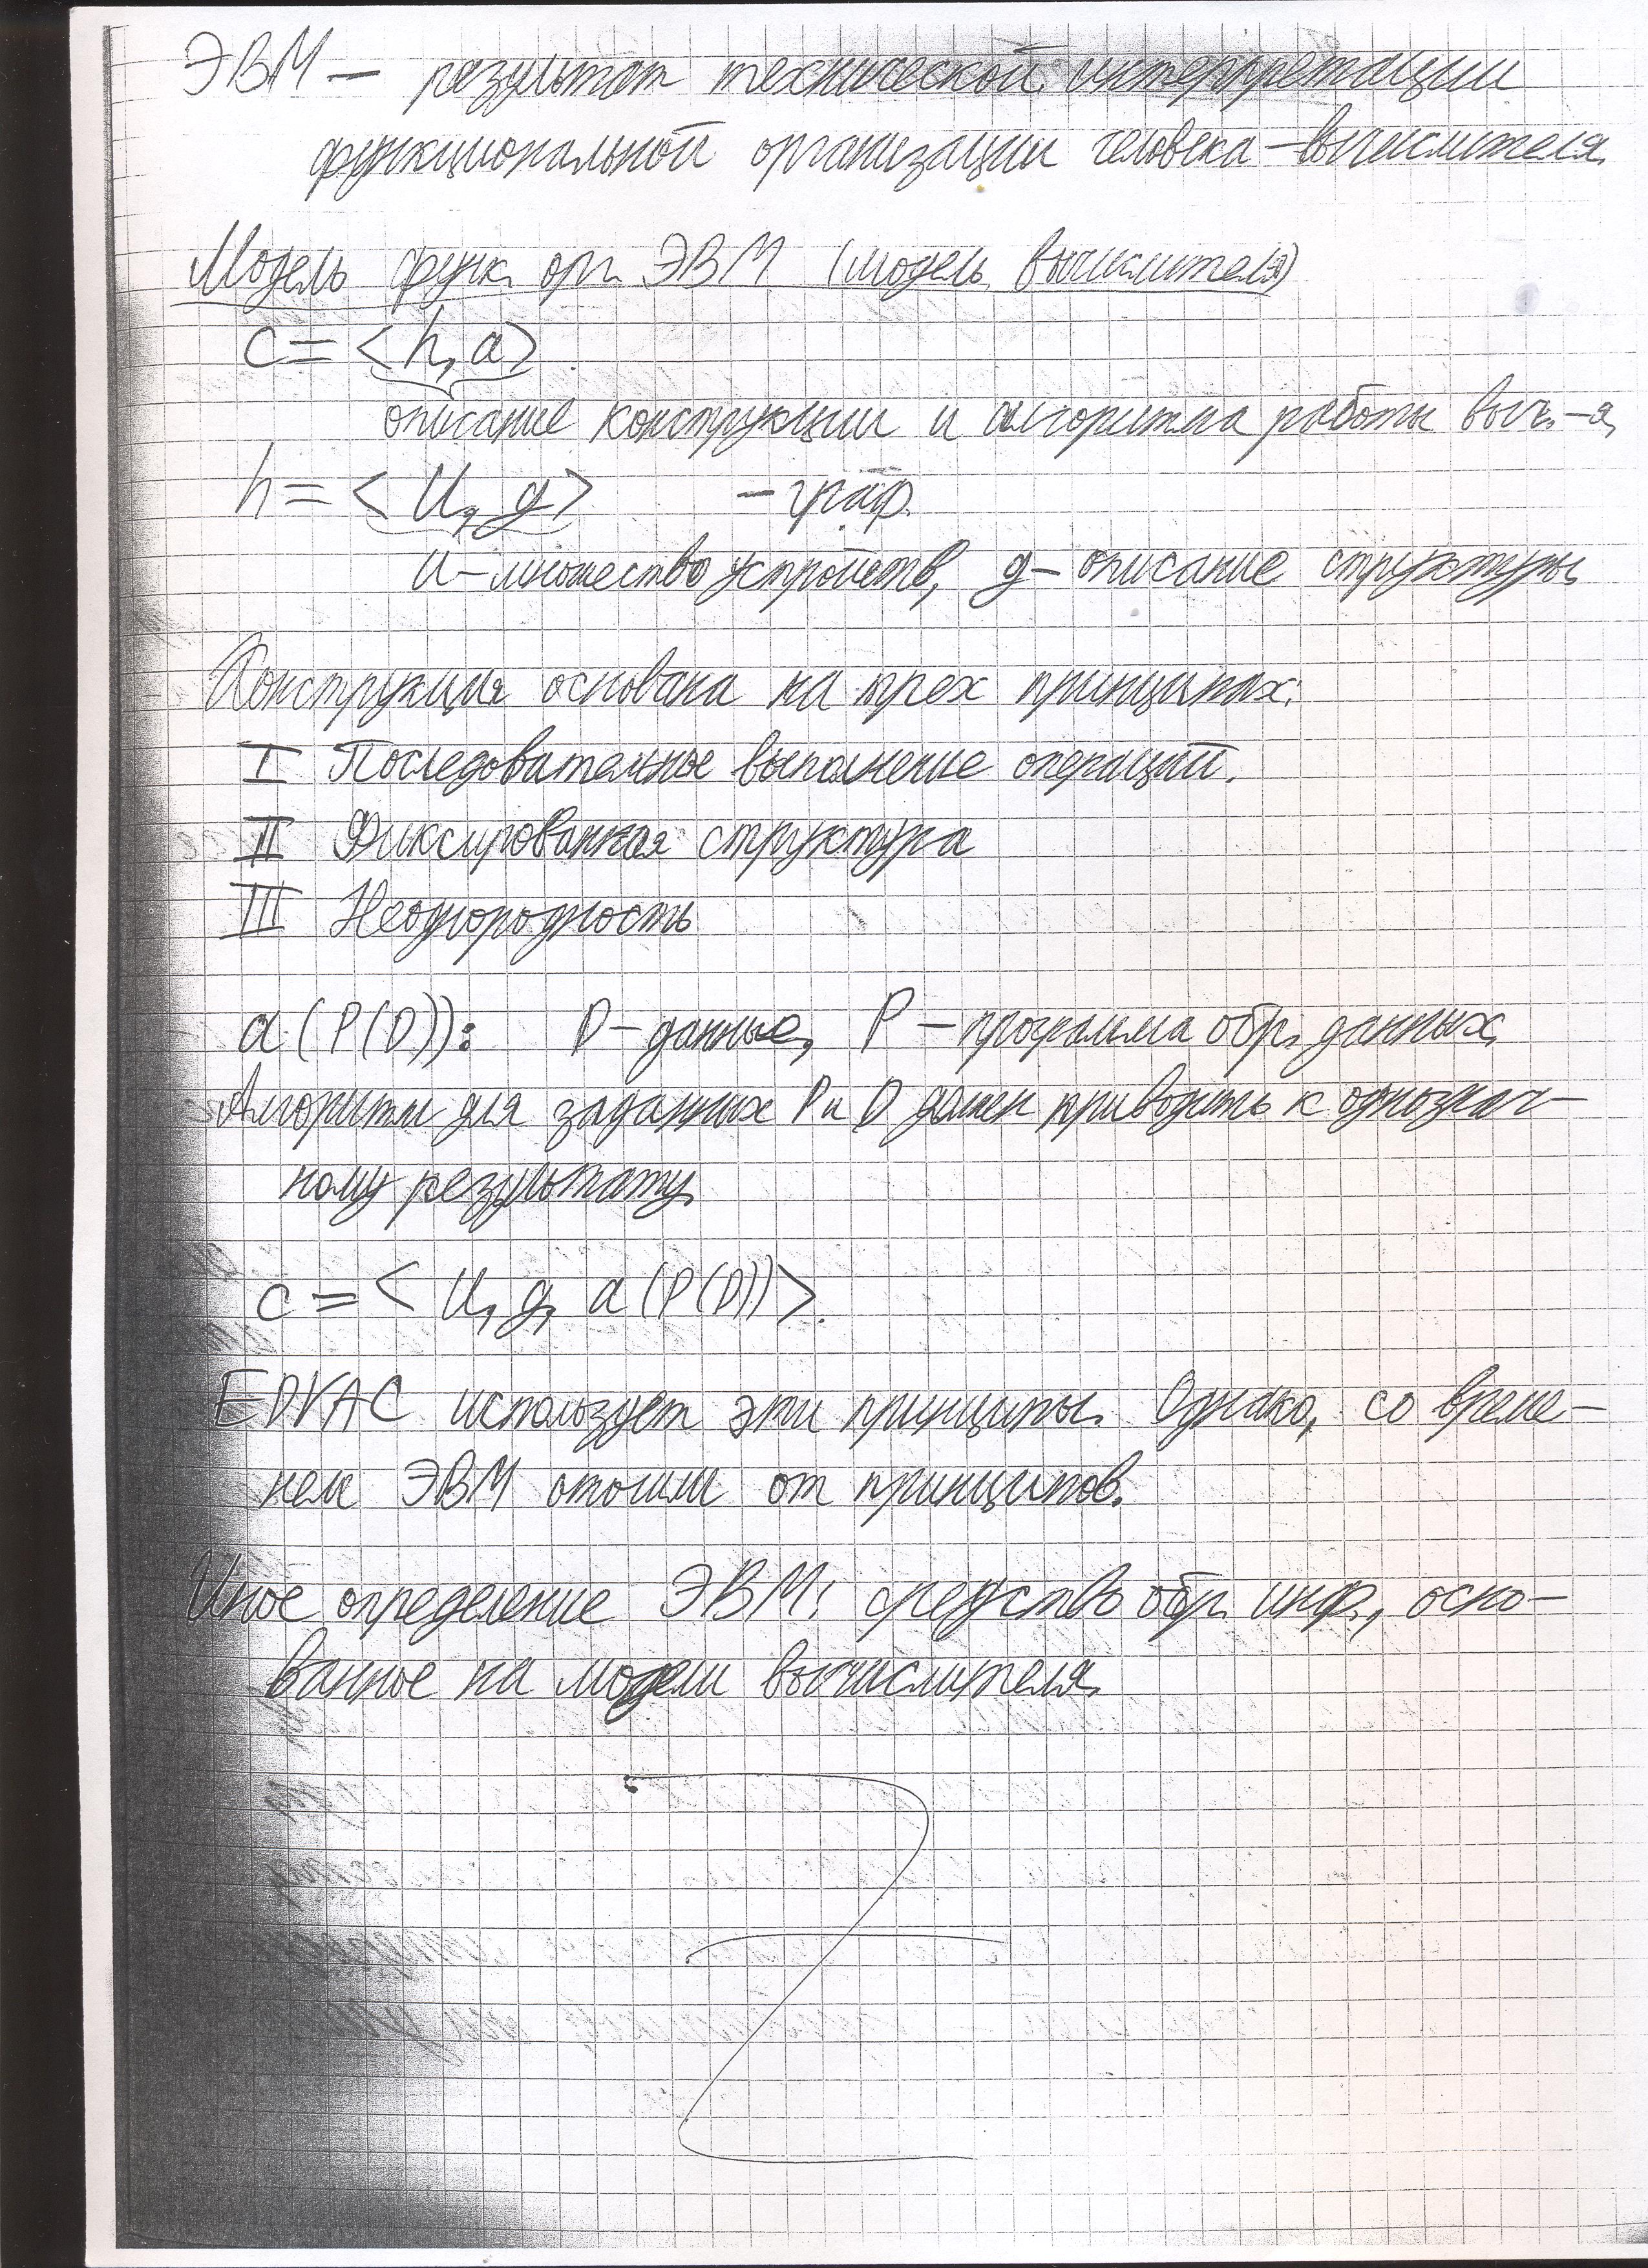 ЭВМ — результат технической интерпретации
функциональной организации человека — вычислителя.
Модель функ. орг. ЭВМ (модель вычислителя)
c = <h, a>
описание конструкции и алгоритма работы выч.-я,
h = <U, g> – граф.
U – множество устройств, g – описание структуры
Конструкция основана на трех принципах:
I Последовательное выполнение операций.
II Фиксированная структура
III Неоднородность
a(P(D)): D – данные, P – программа обр. данных.
Алгоритм для заданных P и D должен приводить к однознач-
ному результату.
c = < U, g, a(P(D))>.
EDVAC использует эти принципы. Однако, со време-
нем ЭВМ отошли от принципов.
Иное определение ЭВМ: средство обр. инф., осно-
ванное на модели вычислителя.